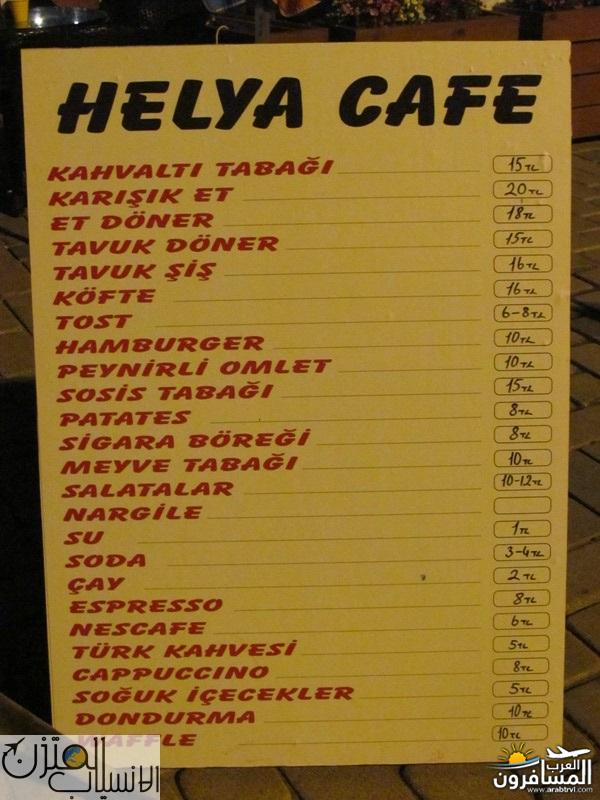 HELYA CAFE
KAHVALTI TABAĞI 15 TL
KARIŞIK ET 20 TL
ET DÖNER 18 TL
TAVUK DÖNER 15 TL
TAVUK ŞİŞ 16 TL
KÖFTE 16 TL
TOST 6-8 TL
HAMBURGER 10 TL
PEYNİRLİ OMLET 10 TL
SOSİS TABAĞI 15 TL
PATATES 8 TL
SİGARA BÖREĞİ 8 TL
MEYVE TABAĞI 10 TL
SALATALAR 10-12 TL
NARGİLE
SU 1 TL
SODA 3-4 TL
ÇAY 2 TL
ESPRESSO 8 TL
NESCAFE 6 TL
TÜRK KAHVESİ 5 TL
CAPPUCCINO 8 TL
SOĞUK İÇECEKLER 5 TL
DONDURMA 10 TL
WAFFLE 10 TL
الانسياب المتزن
العرب
المسافرون
www.arabtrvl.com